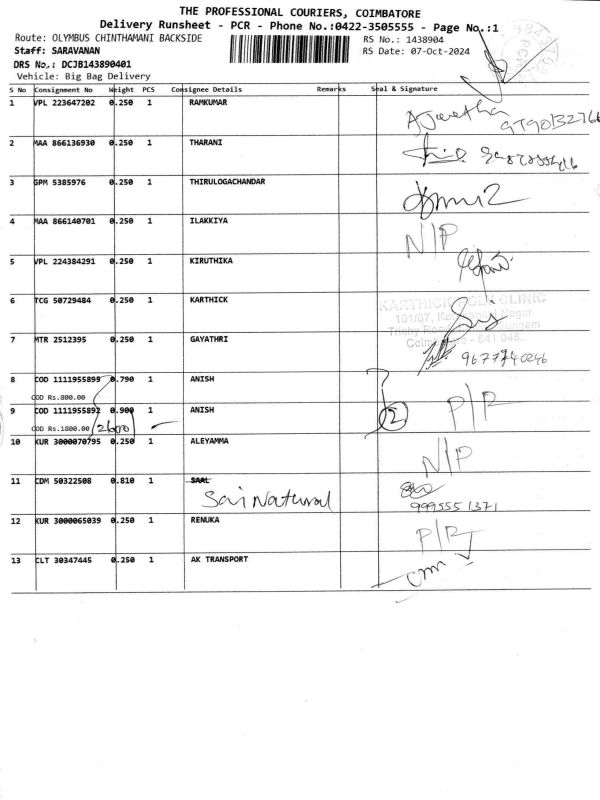 THE PROFESSIONAL COURIERS, COIMBATORE
Delivery Runsheet - PCR - Phone No.:0422-3505555 - Page No.:1
Route: OLYMBUS CHINTHAMANI BACKSIDE RS No.: 1438904
Staff: SARAVANAN RS Date: 07-Oct-2024
DRS No.: DCJB143890401
Vehicle: Big Bag Delivery
S No Consignment No Weight PCS Consignee Details Remarks Seal & Signature
1 VPL 223647202 0.250 1 RAMKUMAR
2 MAA 866136930 0.250 1 THARANI
3 GPM 5385976 0.250 1 THIRULOGACHANDAR
4 MAA 866140701 0.250 1 ILAKKIYA N/P
5 VPL 224384291 0.250 1 KIRUTHIKA
6 TCG 50729484 0.250 1 KARTHICK
KARTHICK POLY CLINIC
7 MTR 2512395 0.250 1 GAYATHRI
9677740246
8 COD 1111955895 0.790 1 ANISH
COD Rs.800.00
9 COD 1111955892 0.900 1 ANISH 2 P/R
COD Rs.1800.00 2600
10 KUR 3000070795 0.250 1 ALEYAMMA N/P
11 CDM 50322508 0.810 1 SAAL
Sai Natural 9995551371
12 KUR 3000065039 0.250 1 RENUKA P/R
13 CLT 30347445 0.250 1 AK TRANSPORT